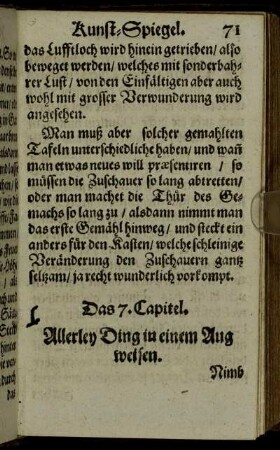 Kunst-Spiegel. 71
das Lufftloch wird hinein getrieben/ also
beweget werden/ welches mit sonderbah-
rer Lust/ von den Einfältigen aber auch
wohl mit grosser Verwunderung wird
angesehen.
Man muß aber solcher gemahlten
Tafeln unterschiedliche haben/ und wañ
man etwas neues will præsenuren/ so
müssen die Zuschauer so lang abtretten/
oder man machet die Thür des Ge-
machs so lang zu/ alsdann nimmt man
das erste Gemähl hinweg/ und steckt ein
anders für den Kasten/ welche schleinige
Veränderung den Zuschauern gantz
seltzam/ ja recht wunderlich vorkompt.
Das 7. Capitel.
Allerley Ding in einem Aug
weisen.
Nimb